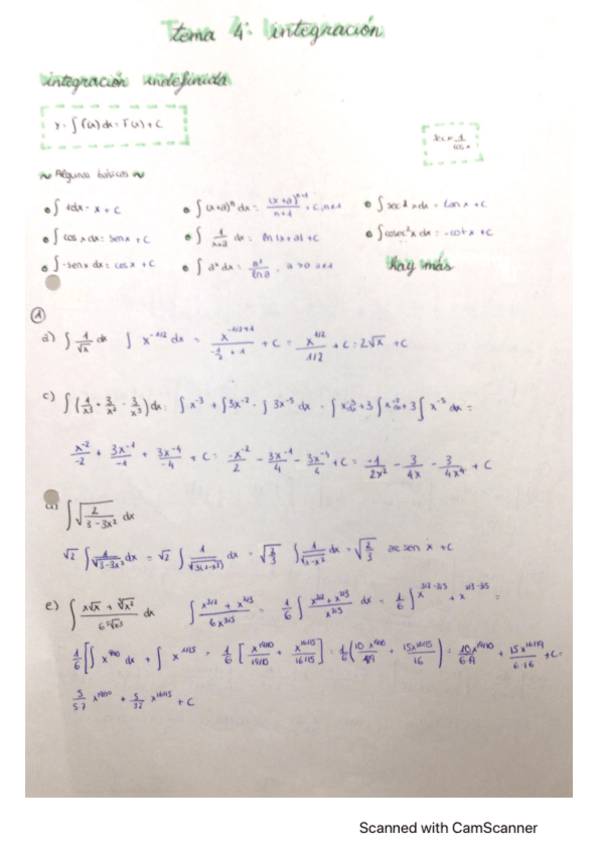 tema 4: integración
integración indefinida
y = ∫ f(x) dx = F(x) + C
sec x = 1/cos x
~ Algunas básicas ~
• ∫ 1dx = x + C
• ∫ (x+a)ⁿ dx = (x+a)ⁿ⁺¹/(n+1) + C, n≠1
• ∫ sec² x dx = tan x + C
• ∫ cos x dx = sen x + C
• ∫ 1/(x+a) dx = ln(x+a) + C
• ∫ cosec² x dx = -cot x + C
• ∫ -sen x dx = cos x + C
• ∫ aˣ dx = aˣ/ln a , a>0 a≠1
hay más
①
a) ∫ 1/√x dx ∫ x^(-1/2) dx = x^(-1/2+1)/(-1/2 + 1) + C = x^(1/2)/(1/2) + C = 2√x + C
c) ∫ (1/x³ + 3/x² - 3/x⁵) dx =
x⁻²/-2 + 3x⁻¹/-1 + 3x⁻⁴/-4 + C = -x⁻²/2 - 3x⁻¹/4 - 3x⁻⁴/4 + C = -1/2x² - 3/4x - 3/4x⁴ + C
d) ∫ √(2/(3-3x²)) dx
√2 ∫ 1/√(3-3x²) dx = √2 ∫ 1/√(3(1-x²)) dx = √(2/3) ∫ 1/√(1-x²) dx = √(2/3) arc sen x + C
e) ∫ (x√x + ∛x²)/(6 ⁵√x³) dx ∫ (x^(3/2) + x^(2/3))/(6x^(3/5)) = 1/6 ∫ (x^(3/2) + x^(2/3))/x^(3/5) dx = 1/6 ∫ x^(3/2-3/5) + x^(2/3-3/5) =
1/6 [∫ x^(9/10) dx + ∫ x^(1/15) = 1/6 [x^(19/10)/(19/10) + x^(16/15)/(16/15)] = 1/6 (10 x^(19/10)/19 + 15x^(16/15)/16) =
5/57 x^(19/10) + 5/32 x^(16/15) + C
Scanned with CamScanner